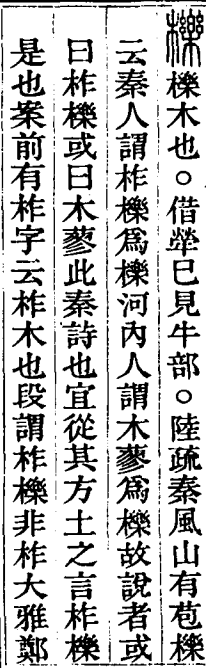 櫟櫟木也○借犖巳見牛部○陸疏秦風山有苞櫟
云秦人謂柞櫟爲櫟河內人謂木蓼爲櫟故說者或
曰柞櫟或曰木蓼此秦詩也宜從其方土之言柞櫟
是也案前有柞字云柞木也段謂柞櫟非柞大雅鄭